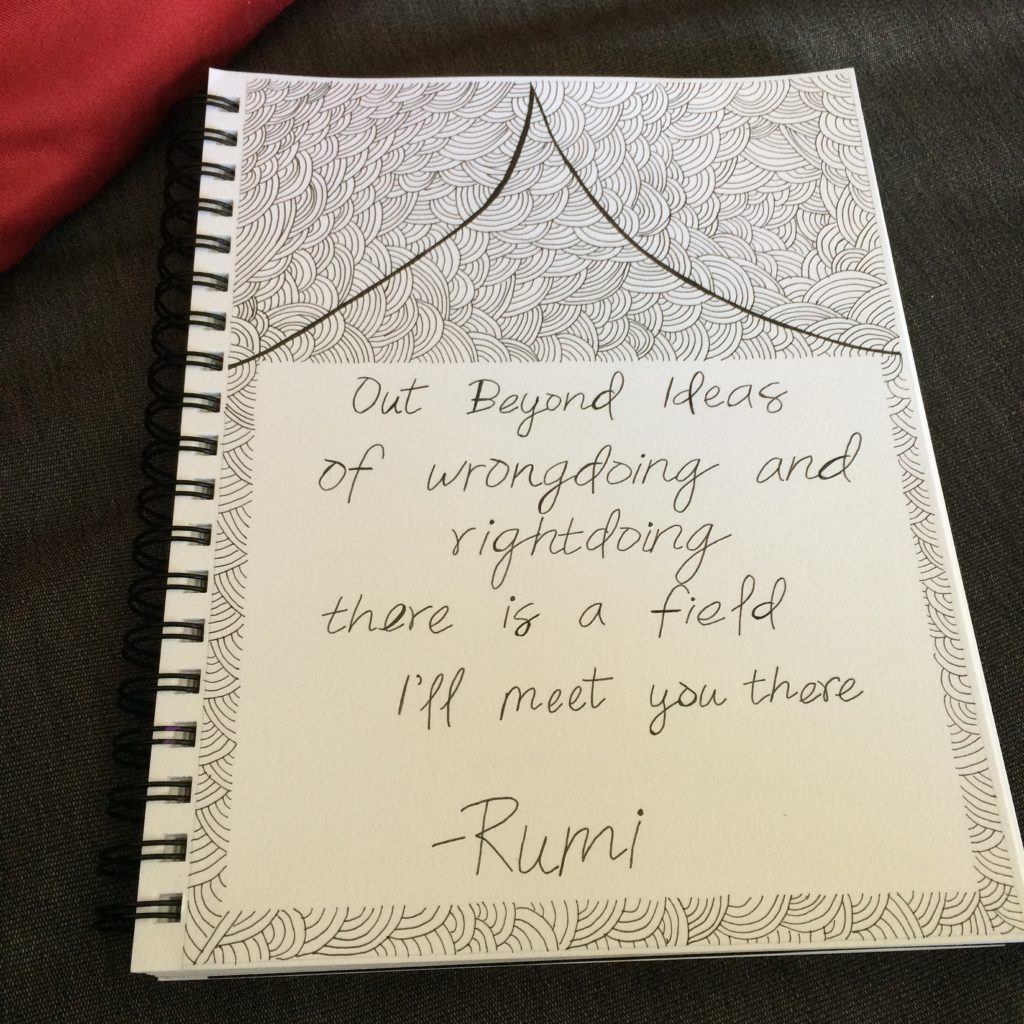 Out Beyond Ideas
of wrongdoing and
rightdoing
there is a field
I'll meet you there
-Rumi